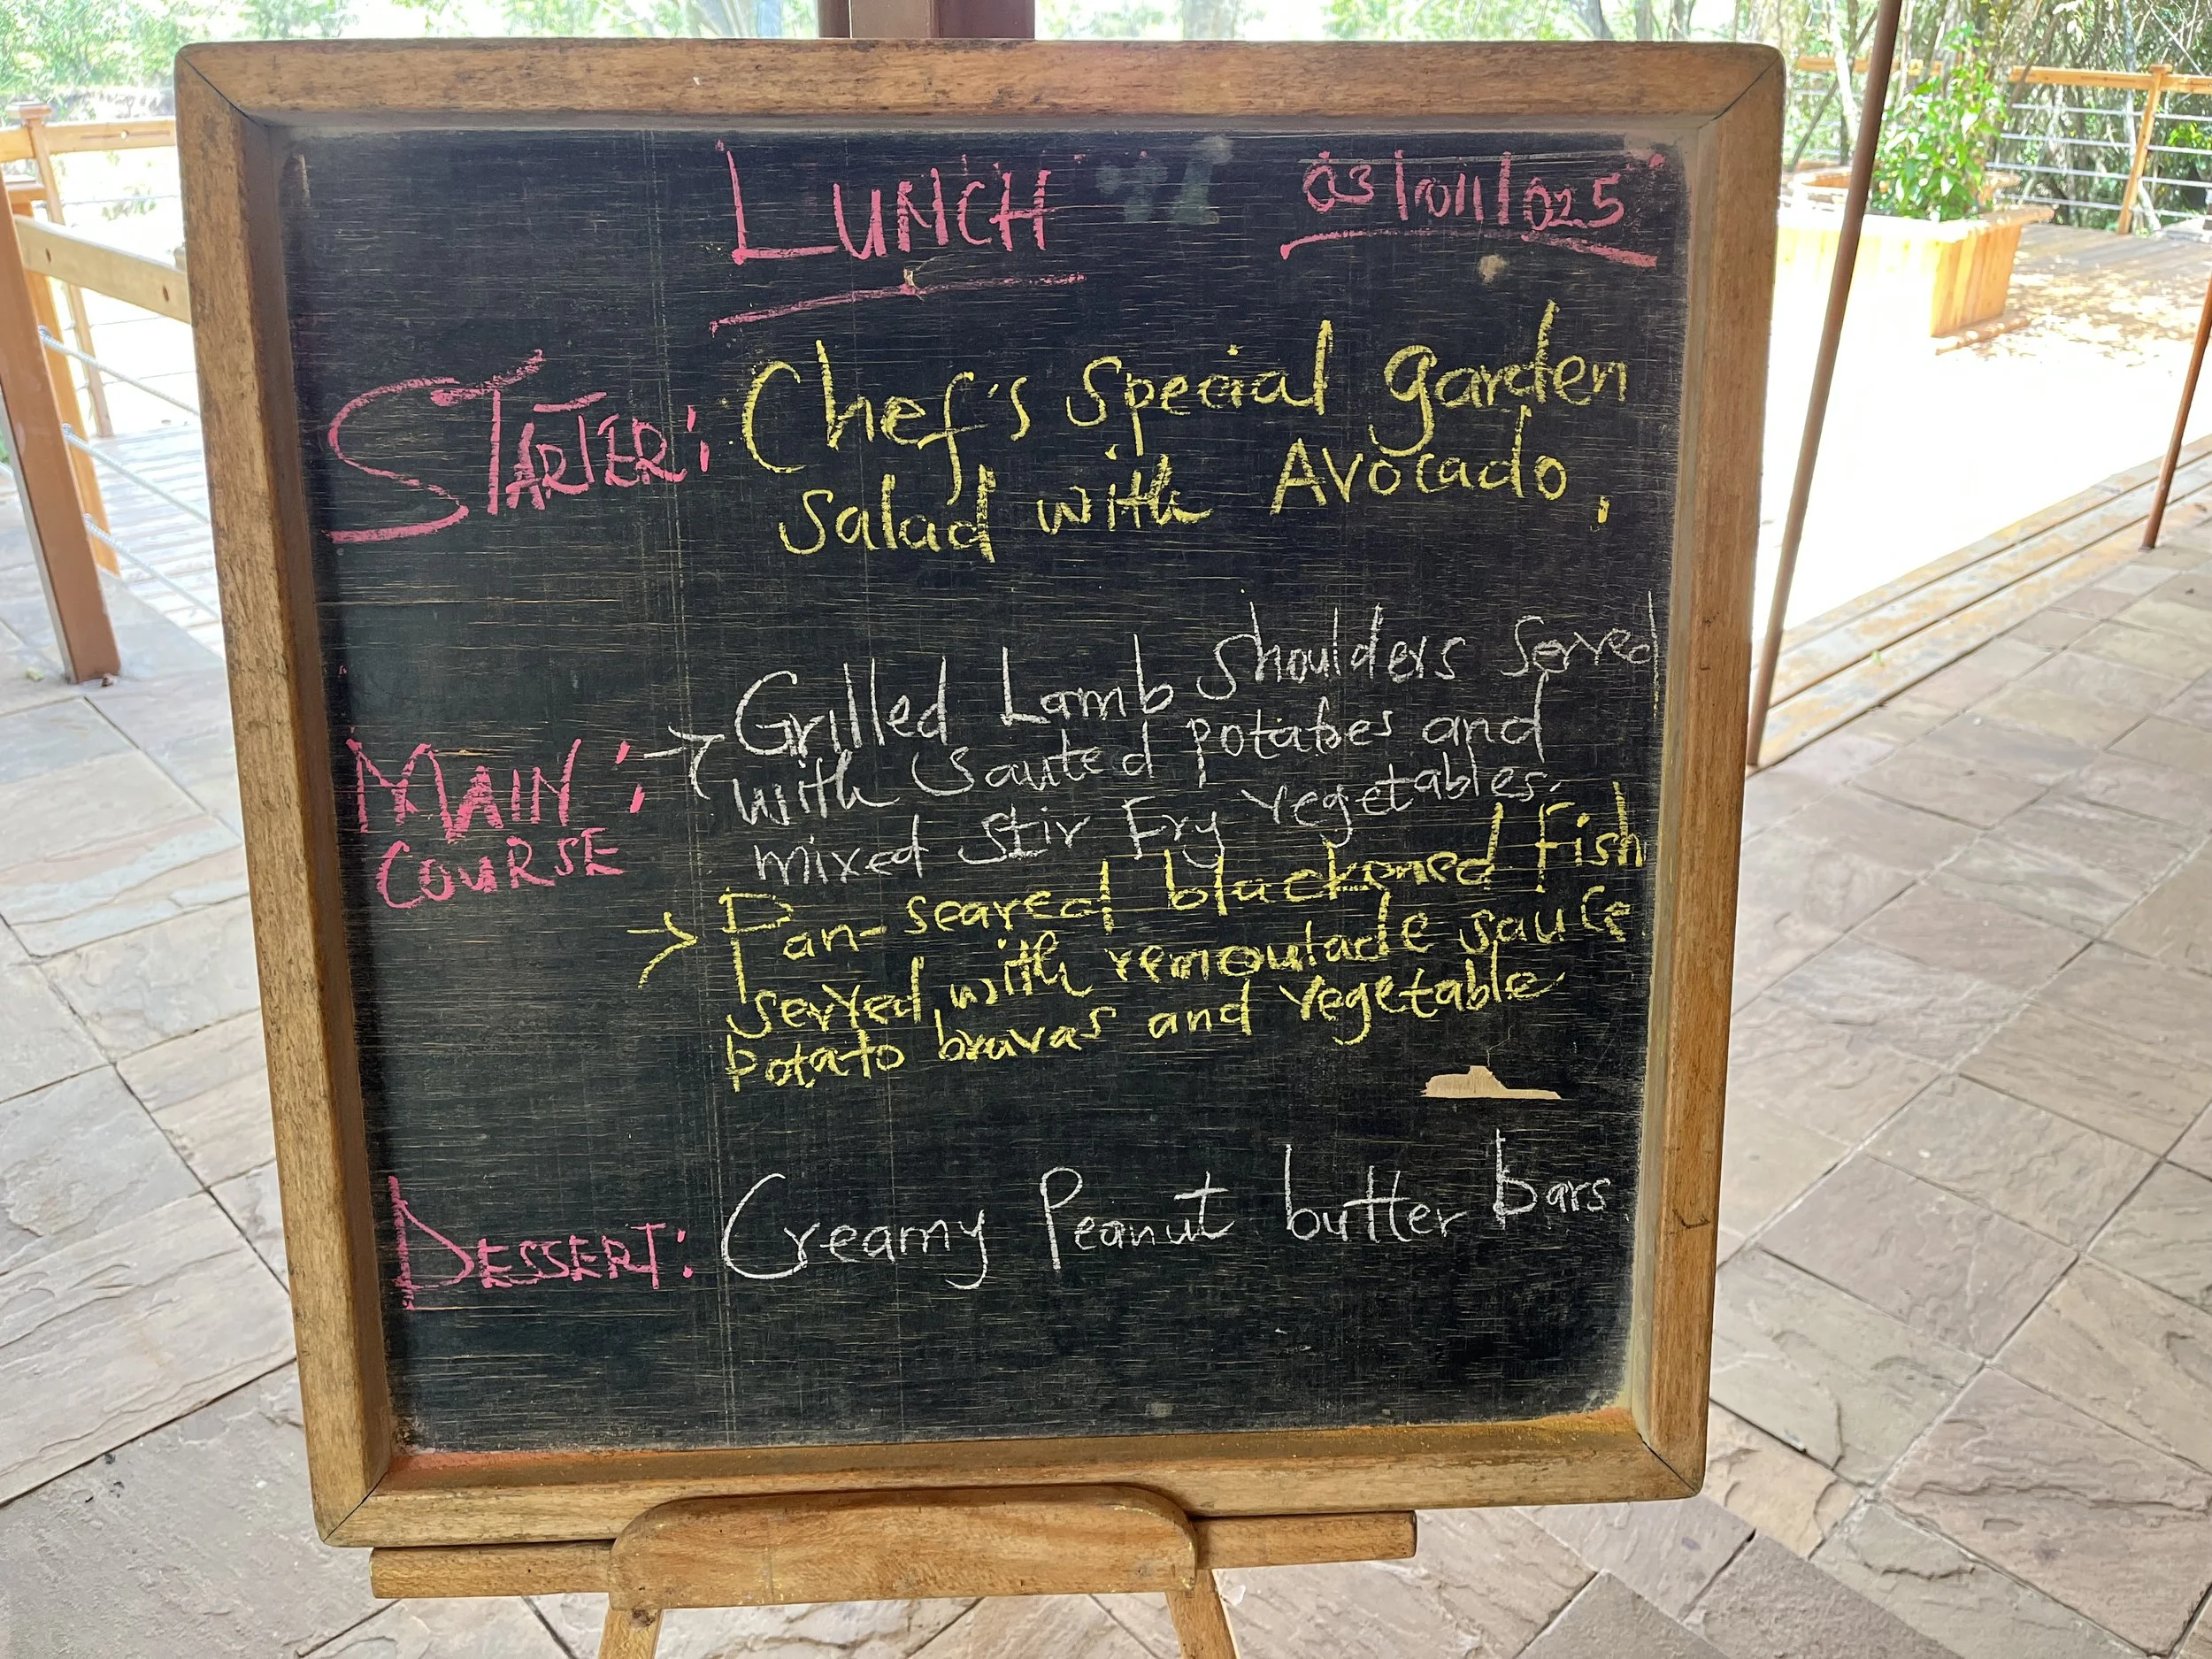 LUNCH 03/011/025
STARTER: Chef's Special garden
Salad with Avocado,
MAIN: → Grilled Lamb shoulders Served
with Sauted potatoes and
COURSE mixed Stir Fry vegetables.
→ Pan-seared blackened Fish
served with remoulade sauce
potato bravas and vegetable
DESSERT: Creamy Peanut butter bars